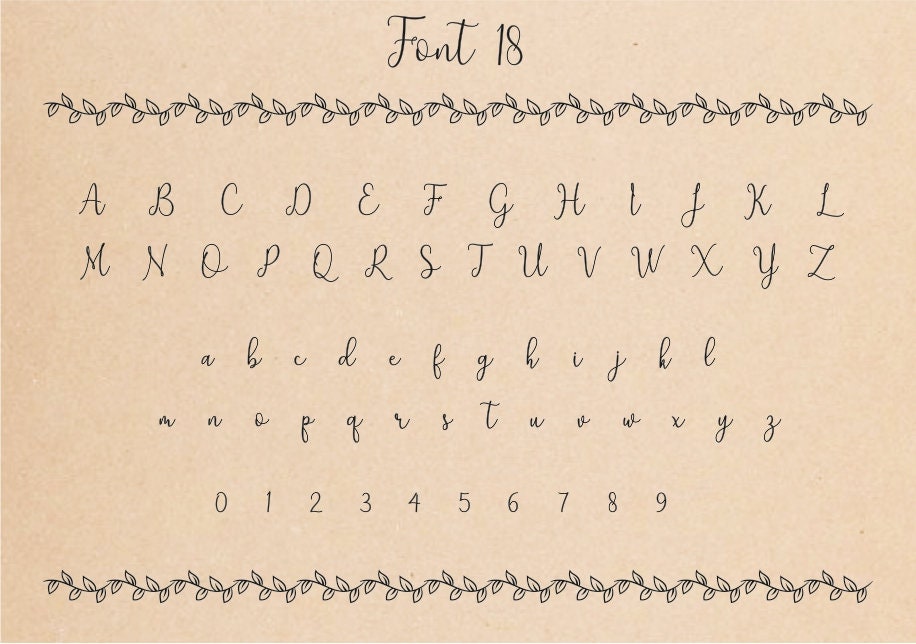 Font 18
A B C D E F G H I J K L
M N O P Q R S T U V W X Y Z
a b c d e f g h i j k l
m n o p q r s t u v w x y z
0 1 2 3 4 5 6 7 8 9